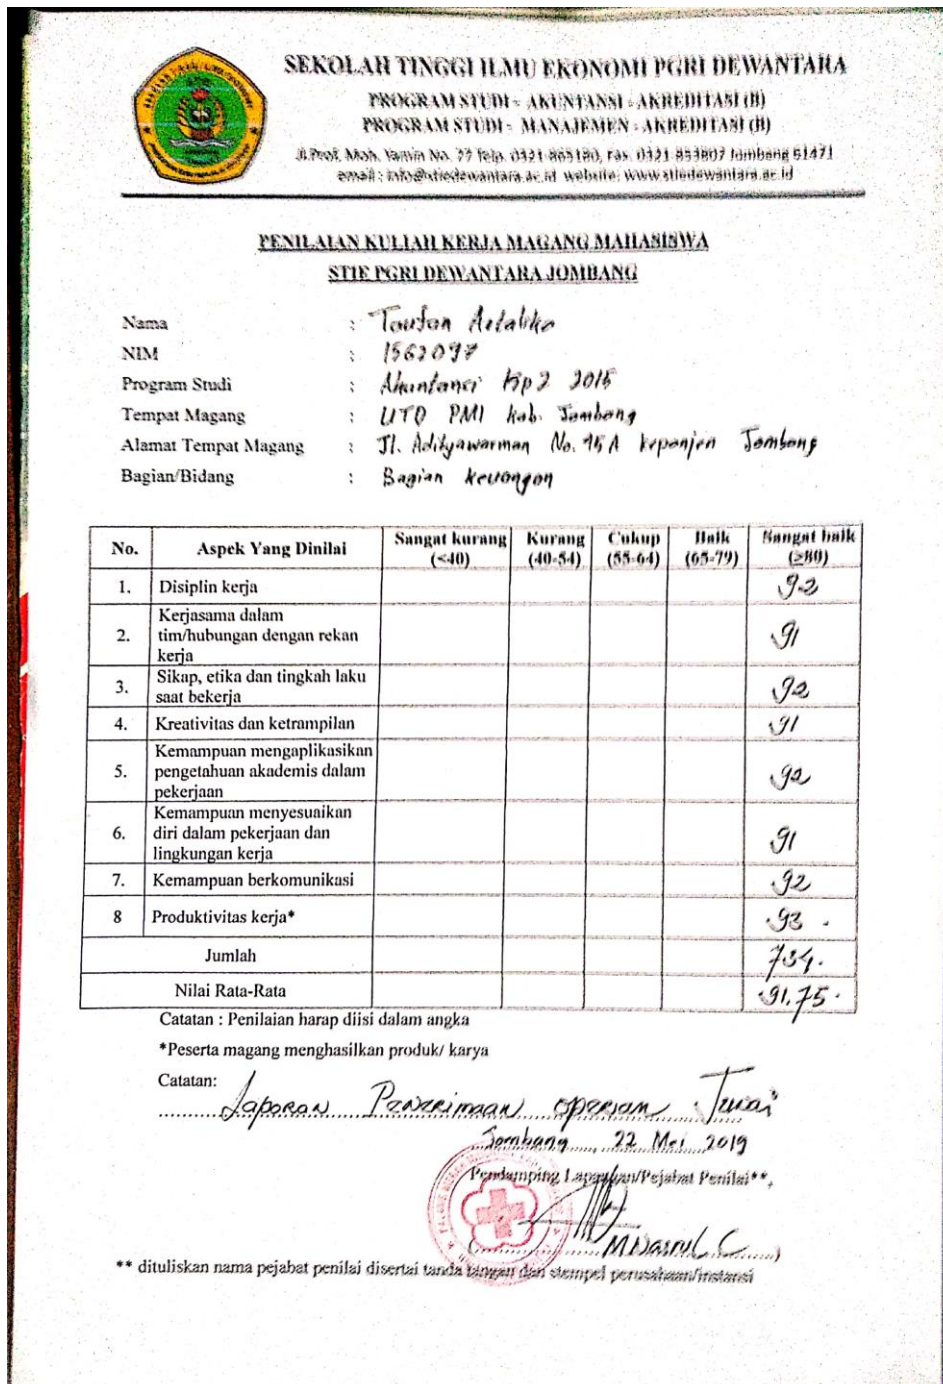 SEKOLAH TINGGI ILMU EKONOMI PGRI DEWANTARA
PROGRAM STUDI - AKUNTANSI - AKREDITASI (B)
PROGRAM STUDI - MANAJEMEN - AKREDITASI (B)
Jl.Prof. Moh. Yamin No. 77 Telp. 0321-865180, Fax. 0321-853807 Jombang 61471
email : info@stiedewantara.ac.id website: www.stiedewantara.ac.id
PENILAIAN KULIAH KERJA MAGANG MAHASISWA
STIE PGRI DEWANTARA JOMBANG
Nama : Taufan
NIM : 1562097
Program Studi : Akuntansi 2015
Tempat Magang : UTD PMI kab. Jombang
Alamat Tempat Magang : Jl. Adityawarman No. 15A kepanjen Jombang
Bagian/Bidang : Bagian keuangan
No. Aspek Yang Dinilai Sangat kurang (<40) Kurang (40-54) Cukup (55-64) Baik (65-79) Sangat baik (≥80)
1. Disiplin kerja 92
2. Kerjasama dalam tim/hubungan dengan rekan kerja 91
3. Sikap, etika dan tingkah laku saat bekerja 92
4. Kreativitas dan ketrampilan 91
5. Kemampuan mengaplikasikan pengetahuan akademis dalam pekerjaan 92
6. Kemampuan menyesuaikan diri dalam pekerjaan dan lingkungan kerja 91
7. Kemampuan berkomunikasi 92
8 Produktivitas kerja* 93
Jumlah 734
Nilai Rata-Rata 91,75
Catatan : Penilaian harap diisi dalam angka
*Peserta magang menghasilkan produk/ karya
Catatan:
Laporan Penerimaan Tunai
Jombang, 22 Mei 2019
Pendamping Lapangan/Pejabat Penilai**,
(M Nasrul C)
** dituliskan nama pejabat penilai disertai tanda tangan dan stempel perusahaan/instansi